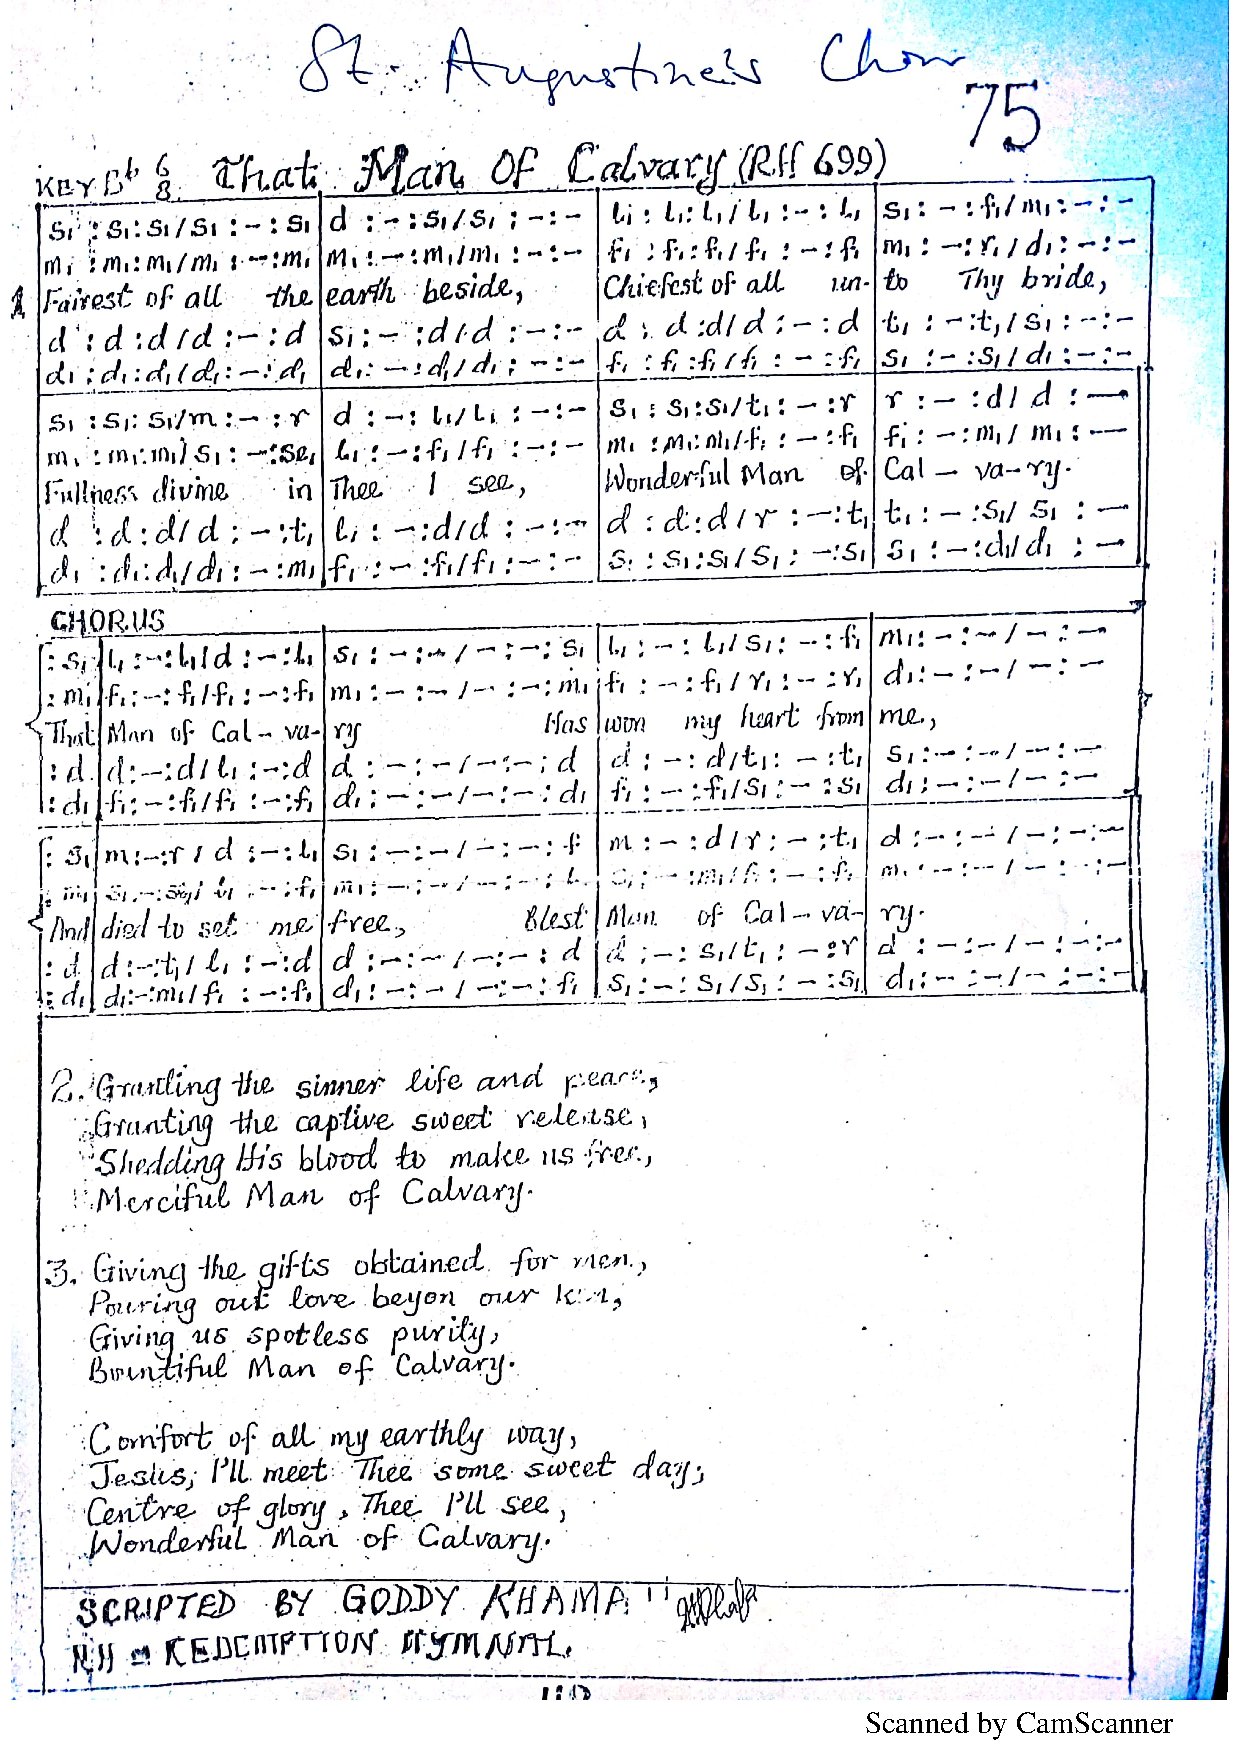 St. Augustine's Choir
75
KEY Bb 6/8 That Man Of Calvary (RH 699)
s₁ : s₁ : s₁ / s₁ : – : s₁ | d : – : s₁ / s₁ : – : – | l₁ : l₁ : l₁ / l₁ : – : l₁ | s₁ : – : f₁ / m₁ : – : –
m₁ : m₁ : m₁ / m₁ : – : m₁ | m₁ : – : m₁ / m₁ : – : – | f₁ : f₁ : f₁ / f₁ : – : f₁ | m₁ : – : r₁ / d₁ : – : –
1 Fairest of all the earth beside, Chiefest of all un- to Thy bride,
d : d : d / d : – : d | s₁ : – : d / d : – : – | d : d : d / d : – : d | t₁ : – : t₁ / s₁ : – : –
d₁ : d₁ : d₁ / d₁ : – : d₁ | d₁ : – : d₁ / d₁ : – : – | f₁ : f₁ : f₁ / f₁ : – : f₁ | s₁ : – : s₁ / d₁ : – : –
s₁ : s₁ : s₁ / m : – : r | d : – : l₁ / l₁ : – : – | s₁ : s₁ : s₁ / t₁ : – : r | r : – : d / d : –
m₁ : m₁ : m₁ / s₁ : – : se₁ | l₁ : – : f₁ / f₁ : – : – | m₁ : m₁ : m₁ / f₁ : – : f₁ | f₁ : – : m₁ / m₁ : –
Fullness divine in Thee I see, Wonderful Man of Cal – va – ry.
d : d : d / d : – : t₁ | l₁ : – : d / d : – : – | d : d : d / r : – : t₁ | t₁ : – : s₁ / s₁ : –
d₁ : d₁ : d₁ / d₁ : – : m₁ | f₁ : – : f₁ / f₁ : – : – | s₁ : s₁ : s₁ / s₁ : – : s₁ | s₁ : – : d₁ / d₁ : –
CHORUS
: s₁ | l₁ : – : l₁ / d : – : l₁ | s₁ : – : – / – : – : s₁ | l₁ : – : l₁ / s₁ : – : f₁ | m₁ : – : – / – : –
: m₁ | f₁ : – : f₁ / f₁ : – : f₁ | m₁ : – : – / – : – : m₁ | f₁ : – : f₁ / r₁ : – : r₁ | d₁ : – : – / – : –
That Man of Cal – va- ry Has won my heart from me,
: d | d : – : d / l₁ : – : d | d : – : – / – : – : d | d : – : d / t₁ : – : t₁ | s₁ : – : – / – : –
: d₁ | f₁ : – : f₁ / f₁ : – : f₁ | d₁ : – : – / – : – : d₁ | f₁ : – : f₁ / s₁ : – : s₁ | d₁ : – : – / – : –
: s₁ | m : – : r / d : – : l₁ | s₁ : – : – / – : – : f | m : – : d / r : – : t₁ | d : – : – / – : – : –
And died to set me free, Blest Man of Cal – va – ry.
: d | d : – : t₁ / l₁ : – : d | d : – : – / – : – : d | d : – : s₁ / t₁ : – : r | d : – : – / – : – : –
: d₁ | d₁ : – : m₁ / f₁ : – : f₁ | d₁ : – : – / – : – : f₁ | s₁ : – : s₁ / s₁ : – : s₁ | d₁ : – : – / – : – : –
2. Granting the sinner life and peace,
Granting the captive sweet release,
Shedding His blood to make us free,
Merciful Man of Calvary.
3. Giving the gifts obtained for men,
Pouring out love beyon our ken,
Giving us spotless purity,
Bountiful Man of Calvary.
Comfort of all my earthly way,
Jesus, I'll meet Thee some sweet day;
Centre of glory, Thee I'll see,
Wonderful Man of Calvary.
SCRIPTED BY GODDY KHAMA
RH = REDEMPTION HYMNAL.
Scanned by CamScanner